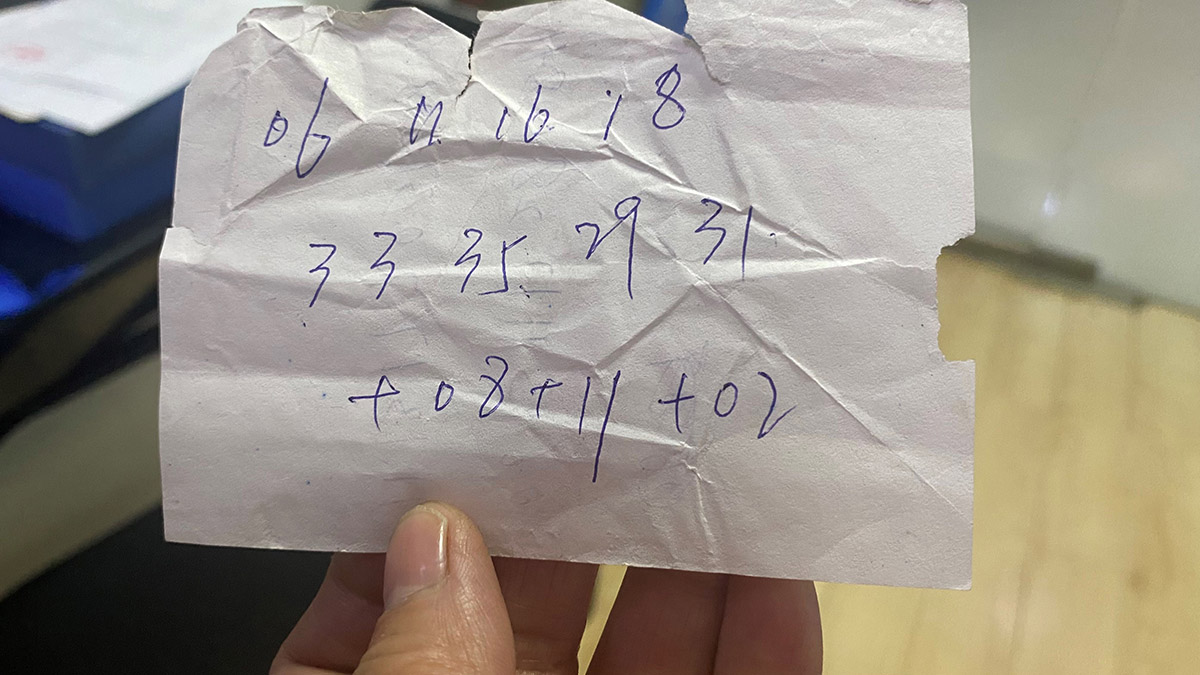 06 11 16 18
33 35 29 31
+08+11+02